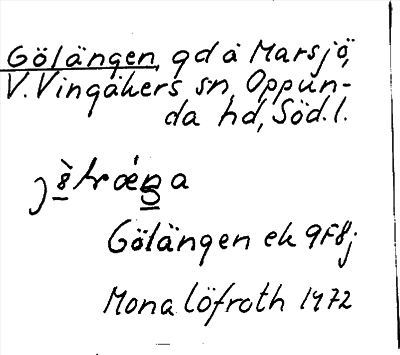 Gölängen, gd å Marsjö,
V. Vingåkers sn, Oppun-
da hd, Söd. l.
Gölängen ek 9F8j
Mona Löfroth 1972